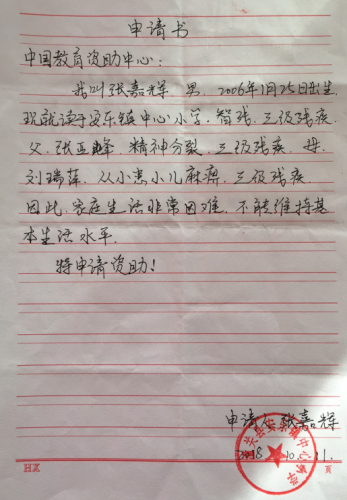 申请书
中国教育资助中心：
我叫张嘉辉 男 2006年1月25日出生.
现就读于安乐镇中心小学. 智残. 三级残疾
父. 张亚峰 精神分裂. 三级残疾. 母.
刘瑞萍. 从小患小儿麻痹. 三级残疾
因此. 家庭生活非常困难. 不能维持基
本生活水平.
特申请资助！
申请人 张嘉辉
2018 10. 31.
HX 页